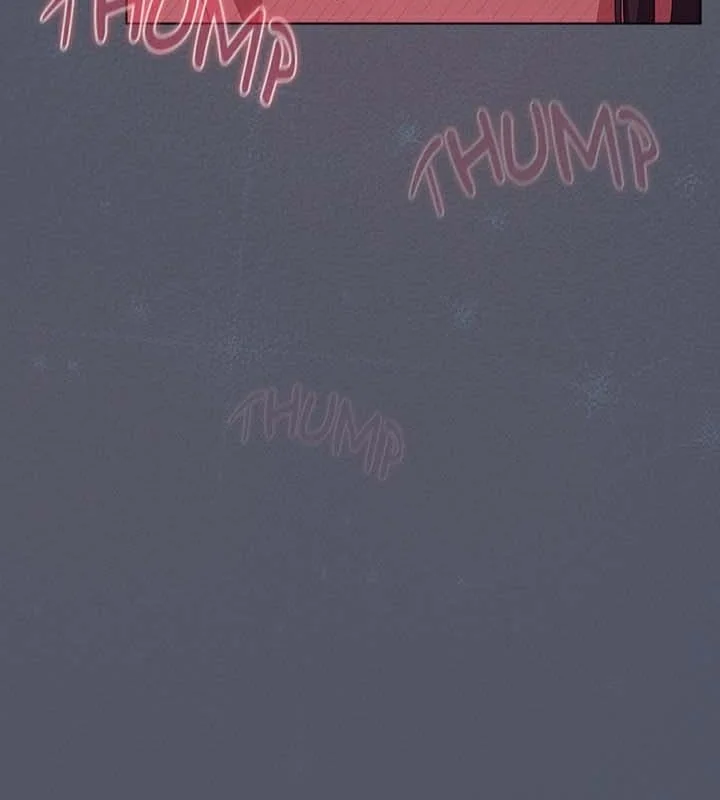 THUMP
THUMP
THUMP